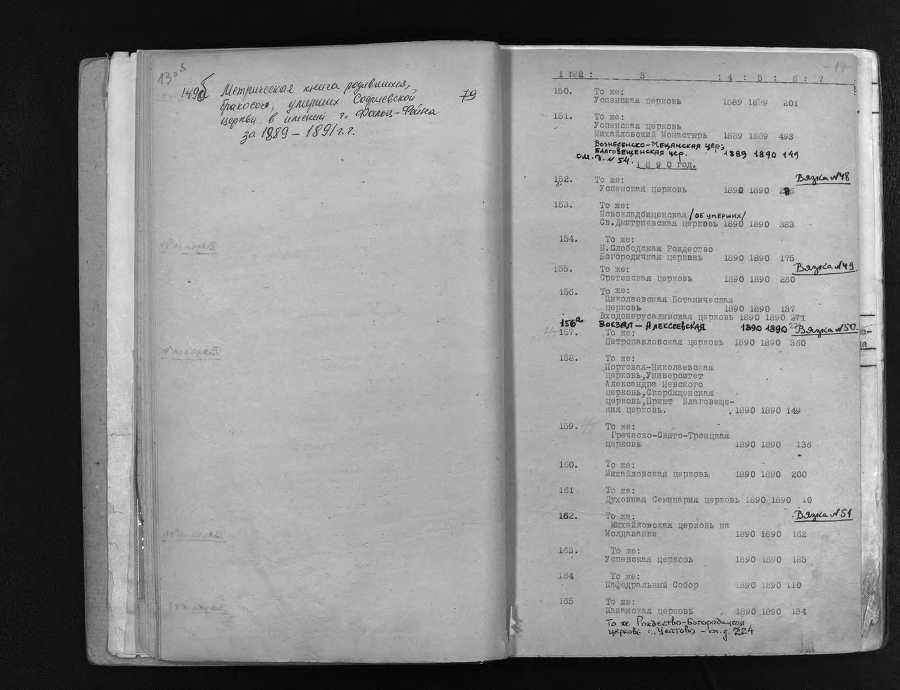 149б Метрическая книга родившихся,
бракосоч., умерших Софиевской 79
церкви в имении г. Фальц-Фейна
за 1889 – 1891 г.г.
150. То же:
Успенская церковь 1889 1889 201
151. То же:
Успенская церковь
Михайловский Монастырь 1889 1889 493
Вознесенско-Мещанская цер.;
Благовещенская цер. 1889 1890 149
см. д. N 54.
1890 год.
Вязка N48
152. То же:
Успенская церковь 1890 1890
153. То же:
Новокладбищенская /об умерших/
Св.Дмитриевская церковь 1890 1890 383
154. То же:
П.Слободская Рождество
Богородичная церковь 1890 1890 175
Вязка N49
155. То же:
Сретенская церковь 1890 1890 280
156. То же:
Николаевская Ботаническая
церковь 1890 1890 137
Входоиерусалимская церковь 1890 1890 271
156а Вокзал – Алексеевская 1890 1890
Вязка N50
157. То же:
Петропавловская церковь 1890 1890 360
158. То же:
Портовая-Николаевская
церковь,Университет
Александра Невского
церковь,Скорбященская
церковь,Приют Благовеще-
ния церковь. 1890 1890 149
159. То же:
Греческо-Свято-Троицкая
церковь 1890 1890 136
160. То же:
Михайловская церковь 1890 1890 200
161 То же:
Духовная Семинария церковь 1890 1890 10
Вязка N51
162. То же:
Михайловская церковь на
Молдаванке 1890 1890 162
163. То же:
Успенская церковь 1890 1890 185
164 То же:
Кафедральный Собор 1890 1890 110
165 То же:
Казанская церковь 1890 1890 184
То же Рождество-Богородицкой
церкви с. Усатово – см. д. 224